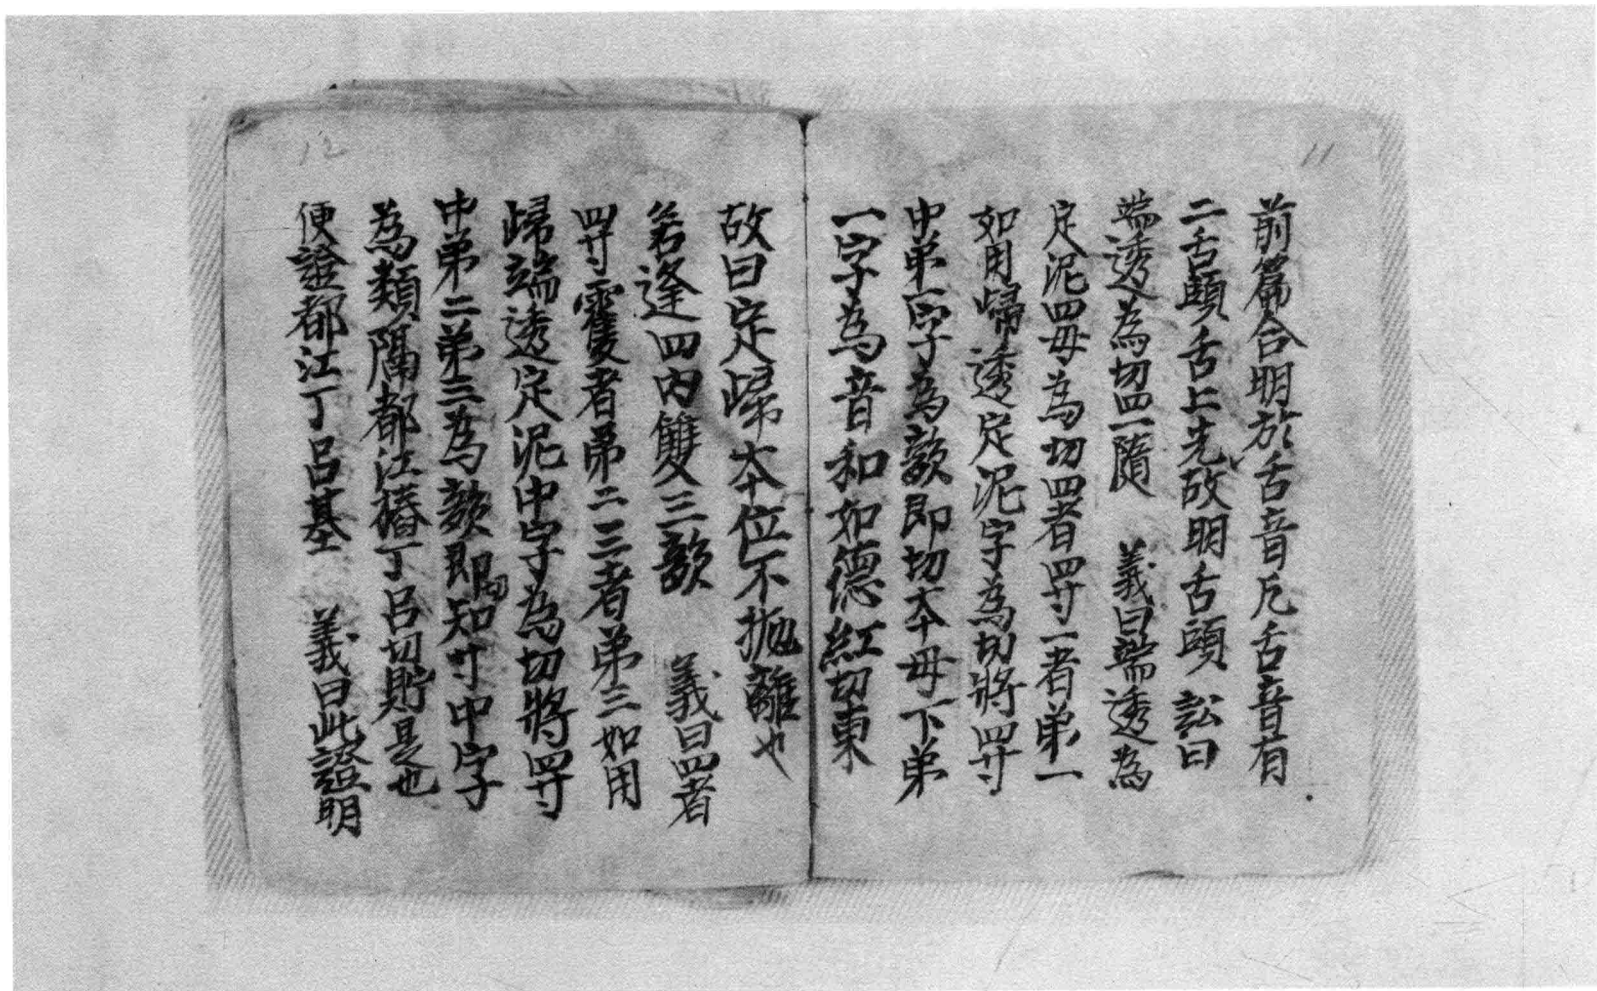 11
前篇合明於舌音凡舌音有
二舌頭舌上先故明舌頭 訟曰
端透為切四一隨 義曰端透為
定泥四母為切四者四等一者弟一
如用歸透定泥字為切將四等
中弟一字為韻即切本母下弟
一字為音和如德紅切東
12
故曰定歸本位不拋離也
若逢四內雙三韻 義曰四者
四等雙者弟二三者弟三如用
歸端透定泥中字為切將四等
中弟二弟三為韻即切知等中字
為類隔都江樁丁呂切貯是也
便證都江丁呂基 義曰此證明